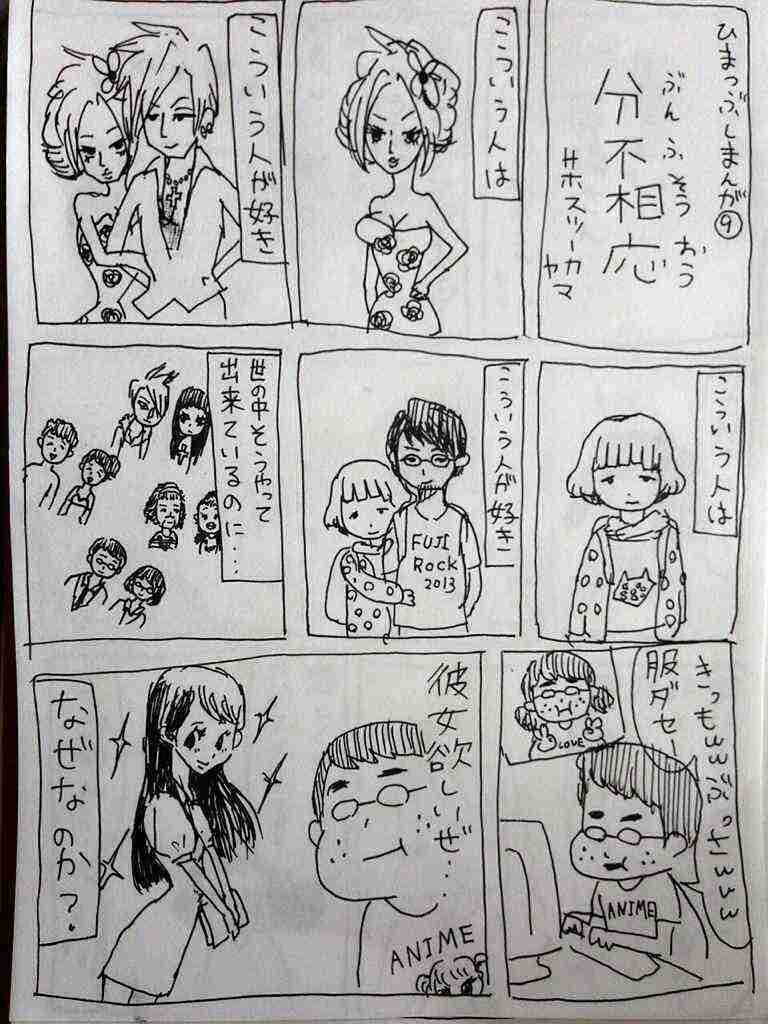 ひまつぶしまんが⑨
ぶんふそうおう
分不相応
こういう人は
こういう人が好き
こういう人は
こういう人が好き
FUJI
Rock
2013
世の中そうやって
出来ているのに…
きっもwwぶっさwww
服ダセー
LOVE
ANIME
彼女欲しいぜ…
ANIME
なぜなのか?